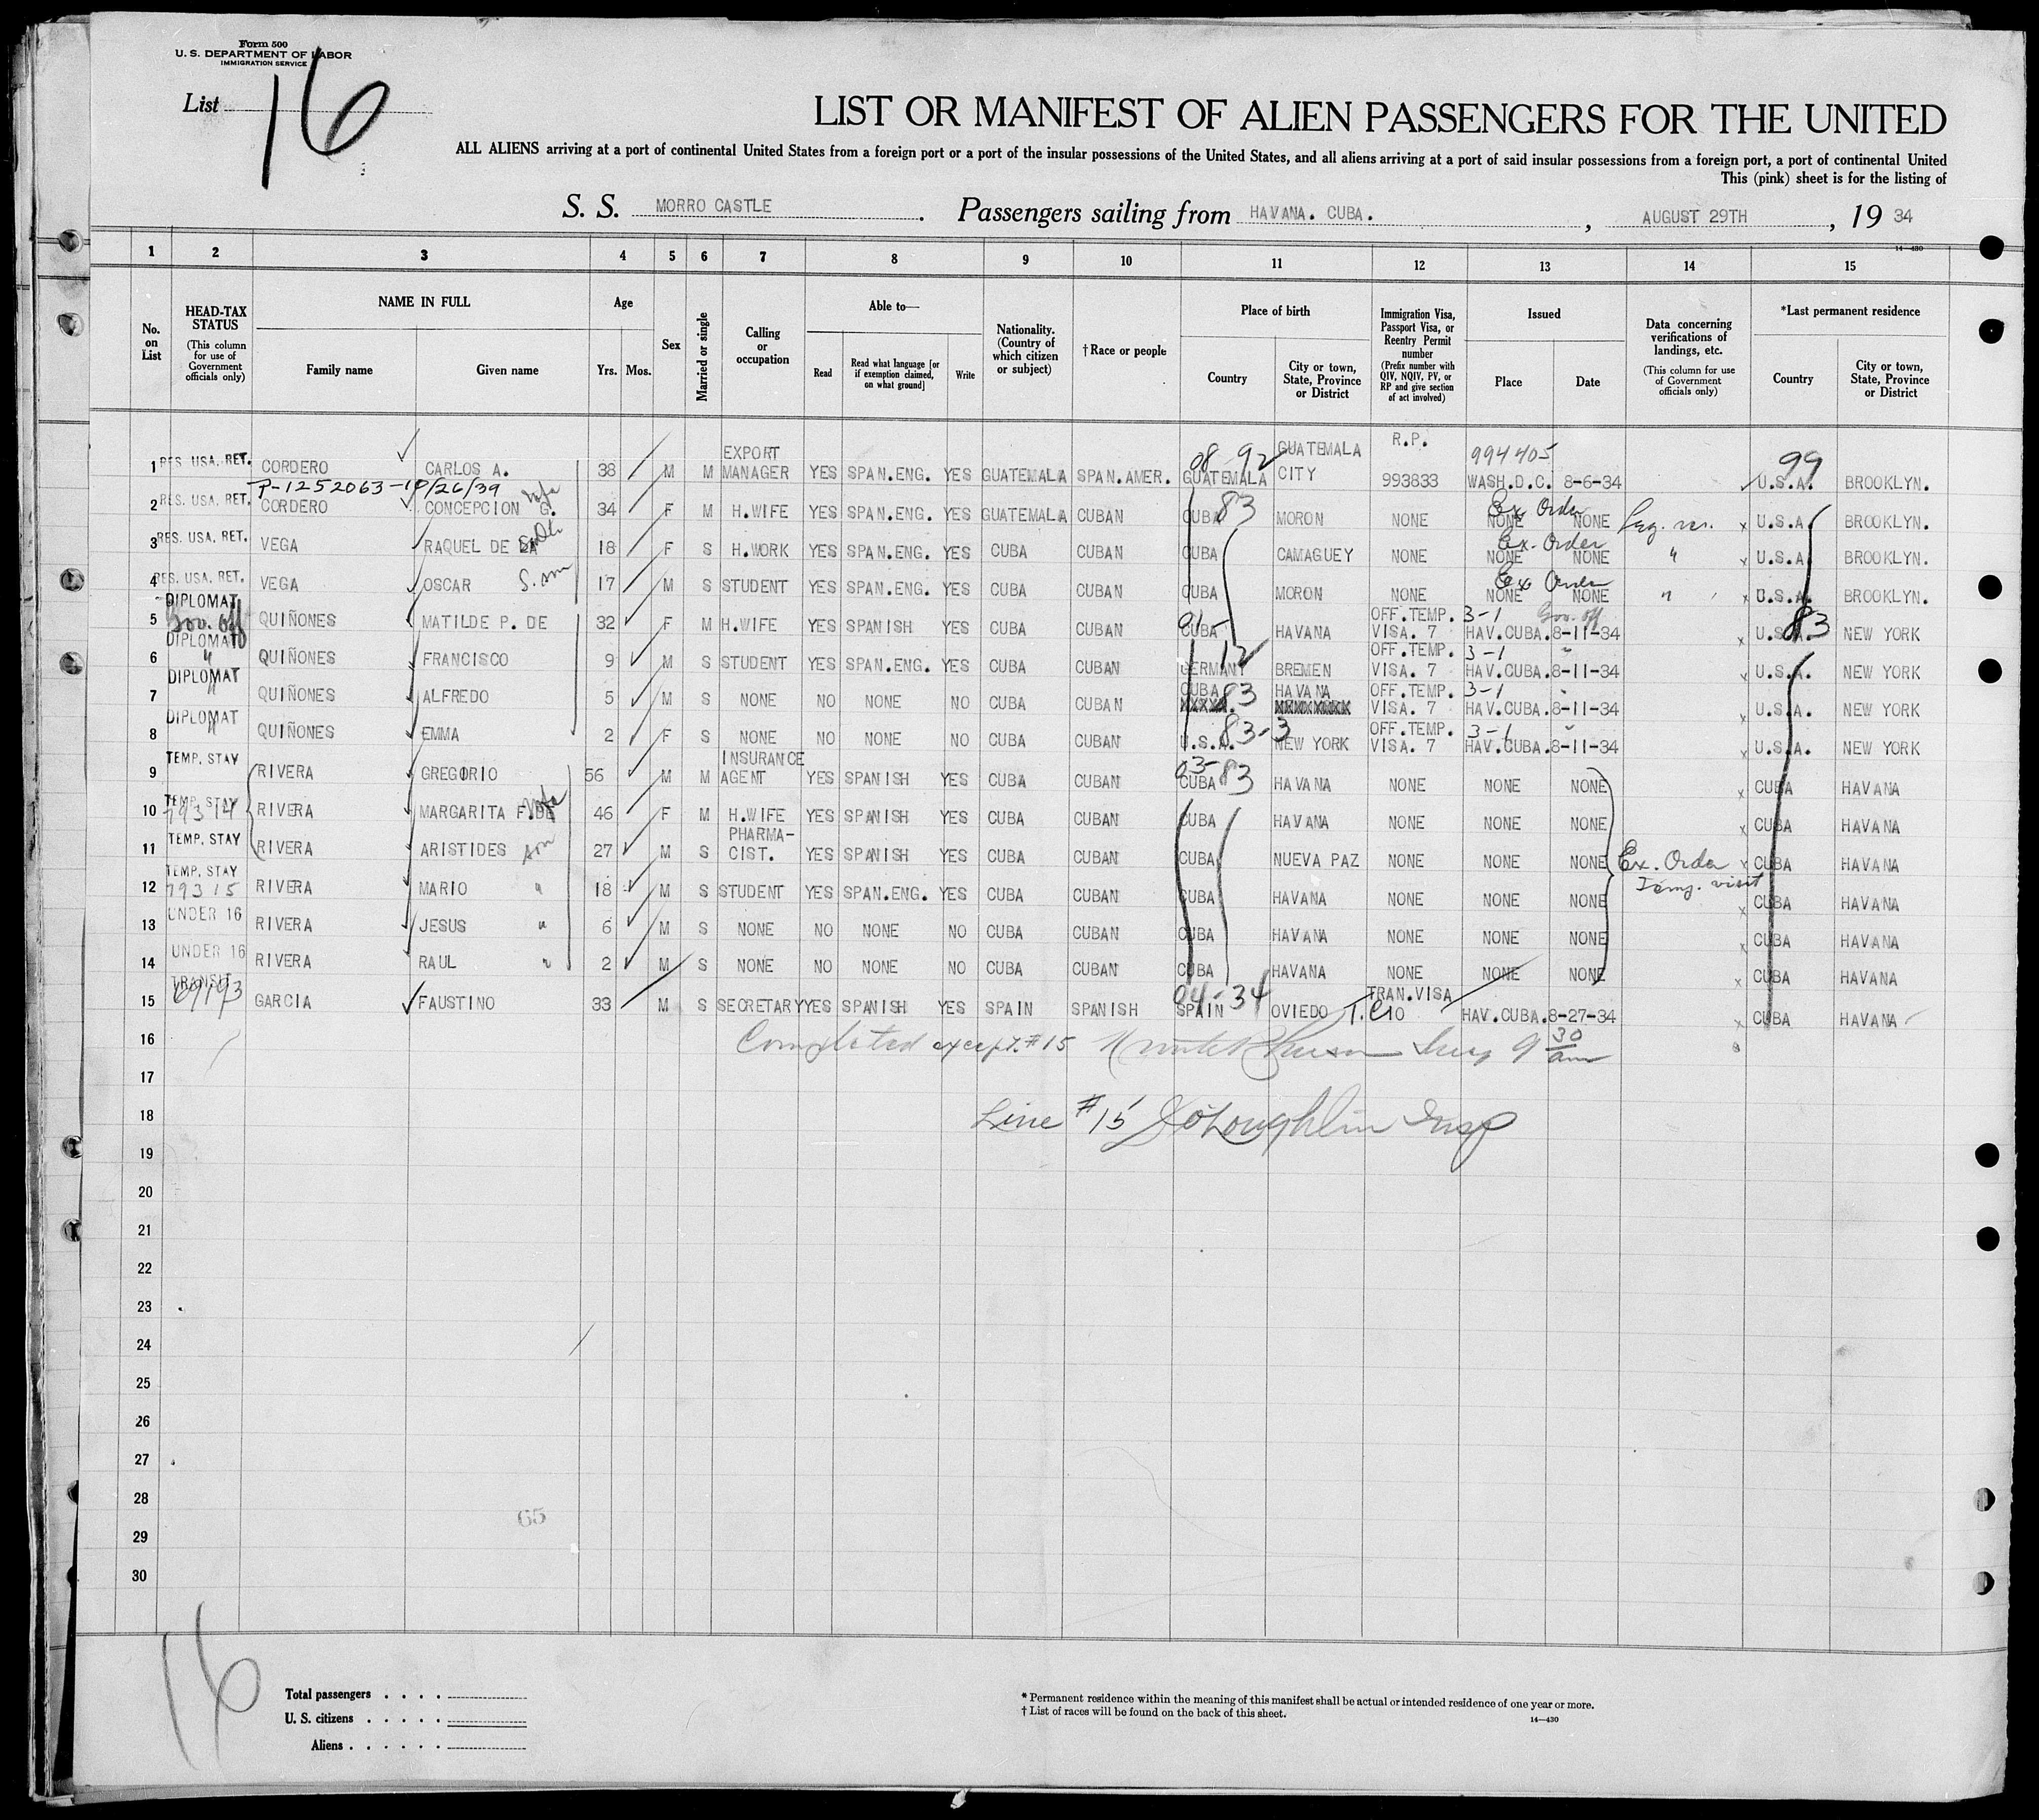 Form 500
U. S. DEPARTMENT OF LABOR
IMMIGRATION SERVICE
List 16
LIST OR MANIFEST OF ALIEN PASSENGERS FOR THE UNITED
ALL ALIENS arriving at a port of continental United States from a foreign port or a port of the insular possessions of the United States, and all aliens arriving at a port of said insular possessions from a foreign port, a port of continental United
This (pink) sheet is for the listing of
S. S. MORRO CASTLE. Passengers sailing from HAVANA. CUBA. , AUGUST 29TH , 19 34
14—430
1 2 3 4 5 6 7 8 9 10 11 12 13 14 15
No. on List
HEAD-TAX STATUS
(This column for use of Government officials only)
NAME IN FULL
Family name Given name
Age
Yrs. Mos.
Sex
Married or single
Calling or occupation
Able to—
Read Read what language [or if exemption claimed, on what ground] Write
Nationality. (Country of which citizen or subject)
†Race or people
Place of birth
Country City or town, State, Province or District
Immigration Visa, Passport Visa, or Reentry Permit number
(Prefix number with QIV, NQIV, PV, or RP and give section of act involved)
Issued
Place Date
Data concerning verifications of landings, etc.
(This column for use of Government officials only)
*Last permanent residence
Country City or town, State, Province or District
1 RES. USA. RET. CORDERO CARLOS A. 38 M M EXPORT MANAGER YES SPAN.ENG. YES GUATEMALA SPAN.AMER. 08-92 GUATEMALA GUATEMALA CITY R.P. 993833 994405 WASH.D.C. 8-6-34 99 U.S.A. BROOKLYN.
P-1252063-10/26/39
2 RES. USA. RET. CORDERO CONCEPCION G. wfe 34 F M H.WIFE YES SPAN.ENG. YES GUATEMALA CUBAN CUBA 83 MORON NONE Ex Order NONE NONE x U.S.A. BROOKLYN.
3 RES. USA. RET. VEGA RAQUEL DE LA 18 F S H.WORK YES SPAN.ENG. YES CUBA CUBAN CUBA CAMAGUEY NONE Ex. Order NONE NONE " x U.S.A. BROOKLYN.
4 RES. USA. RET. VEGA OSCAR S. son 17 M S STUDENT YES SPAN.ENG. YES CUBA CUBAN CUBA MORON NONE Ex Order NONE NONE " x U.S.A. BROOKLYN.
5 DIPLOMAT Gov. off QUIÑONES MATILDE P. DE 32 F M H.WIFE YES SPANISH YES CUBA CUBAN CUBA HAVANA OFF.TEMP. VISA. 7 3-1 Gov. off HAV.CUBA. 8-11-34 x U.S.A. 83 NEW YORK
6 DIPLOMAT " QUIÑONES FRANCISCO 9 M S STUDENT YES SPAN.ENG. YES CUBA CUBAN 12 GERMANY BREMEN OFF.TEMP. VISA. 7 3-1 " HAV.CUBA. 8-11-34 x U.S.A. NEW YORK
7 DIPLOMAT " QUIÑONES ALFREDO 5 M S NONE NO NONE NO CUBA CUBAN CUBA 83 HAVANA OFF.TEMP. VISA. 7 3-1 " HAV.CUBA. 8-11-34 x U.S.A. NEW YORK
8 DIPLOMAT " QUIÑONES EMMA 2 F S NONE NO NONE NO CUBA CUBAN 83-3 U.S.A. NEW YORK OFF.TEMP. VISA. 7 3-1 " HAV.CUBA. 8-11-34 x U.S.A. NEW YORK
9 TEMP. STAY RIVERA GREGORIO 56 M M INSURANCE AGENT YES SPANISH YES CUBA CUBAN 03-83 CUBA HAVANA NONE NONE NONE x CUBA HAVANA
10 TEMP. STAY 79314 RIVERA MARGARITA F. DE wfe 46 F M H.WIFE YES SPANISH YES CUBA CUBAN CUBA HAVANA NONE NONE NONE x CUBA HAVANA
11 TEMP. STAY RIVERA ARISTIDES son 27 M S PHARMA-CIST. YES SPANISH YES CUBA CUBAN CUBA NUEVA PAZ NONE NONE NONE Ex. Order x CUBA HAVANA
12 TEMP. STAY 79315 RIVERA MARIO " 18 M S STUDENT YES SPAN.ENG. YES CUBA CUBAN CUBA HAVANA NONE NONE NONE Temp. visit x CUBA HAVANA
13 UNDER 16 RIVERA JESUS " 6 M S NONE NO NONE NO CUBA CUBAN CUBA HAVANA NONE NONE NONE x CUBA HAVANA
14 UNDER 16 RIVERA RAUL " 2 M S NONE NO NONE NO CUBA CUBAN CUBA HAVANA NONE NONE NONE x CUBA HAVANA
15 TRANSIT GARCIA FAUSTINO 33 M S SECRETARY YES SPANISH YES SPAIN SPANISH 04-34 SPAIN OVIEDO TRAN.VISA HAV.CUBA. 8-27-34 x CUBA HAVANA
16 Completed except #15 9 30 am
17
18 Line #15 O'Loughlin Insp
19
20
21
22
23
24
25
26
27
28
65
29
30
16
Total passengers . . . .
U. S. citizens . . . . .
Aliens . . . . . .
* Permanent residence within the meaning of this manifest shall be actual or intended residence of one year or more.
† List of races will be found on the back of this sheet.
14—430